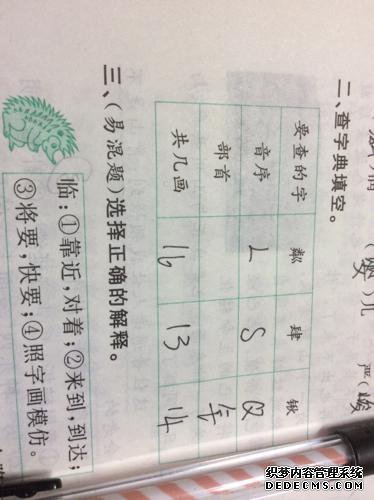 (婴)儿 严(峻
二、查字典填空。
要查的字 粼 肆 锹
音序 L S Q
部首 钅
共几画 16 13 14
三、(易混题)选择正确的解释。
临:①靠近,对着;②来到,到达;
③将要,快要;④照字画模仿。
织梦内容管理系统
DEDECMS.COM